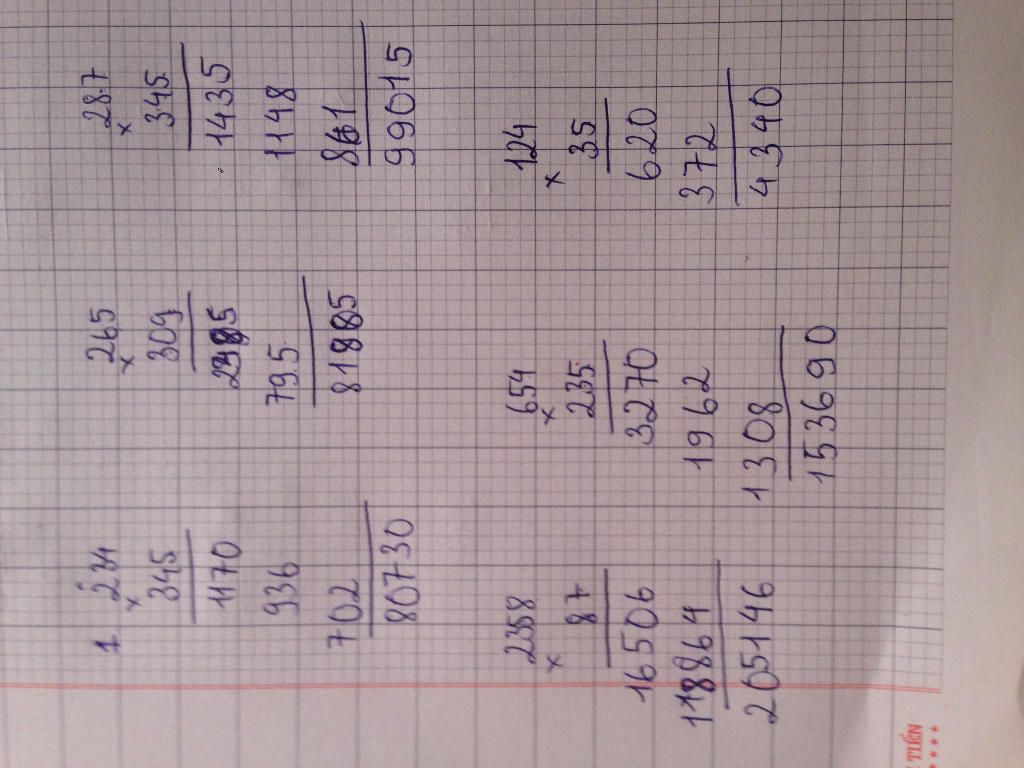 1. 234
x
345
1170
936
702
80730
265
x
309
2385
795
81885
287
x
345
1435
1148
861
99015
2358
x
87
16506
18864
205146
654
x
235
3270
1962
1308
153690
124
x
35
620
372
4340
TIẾN